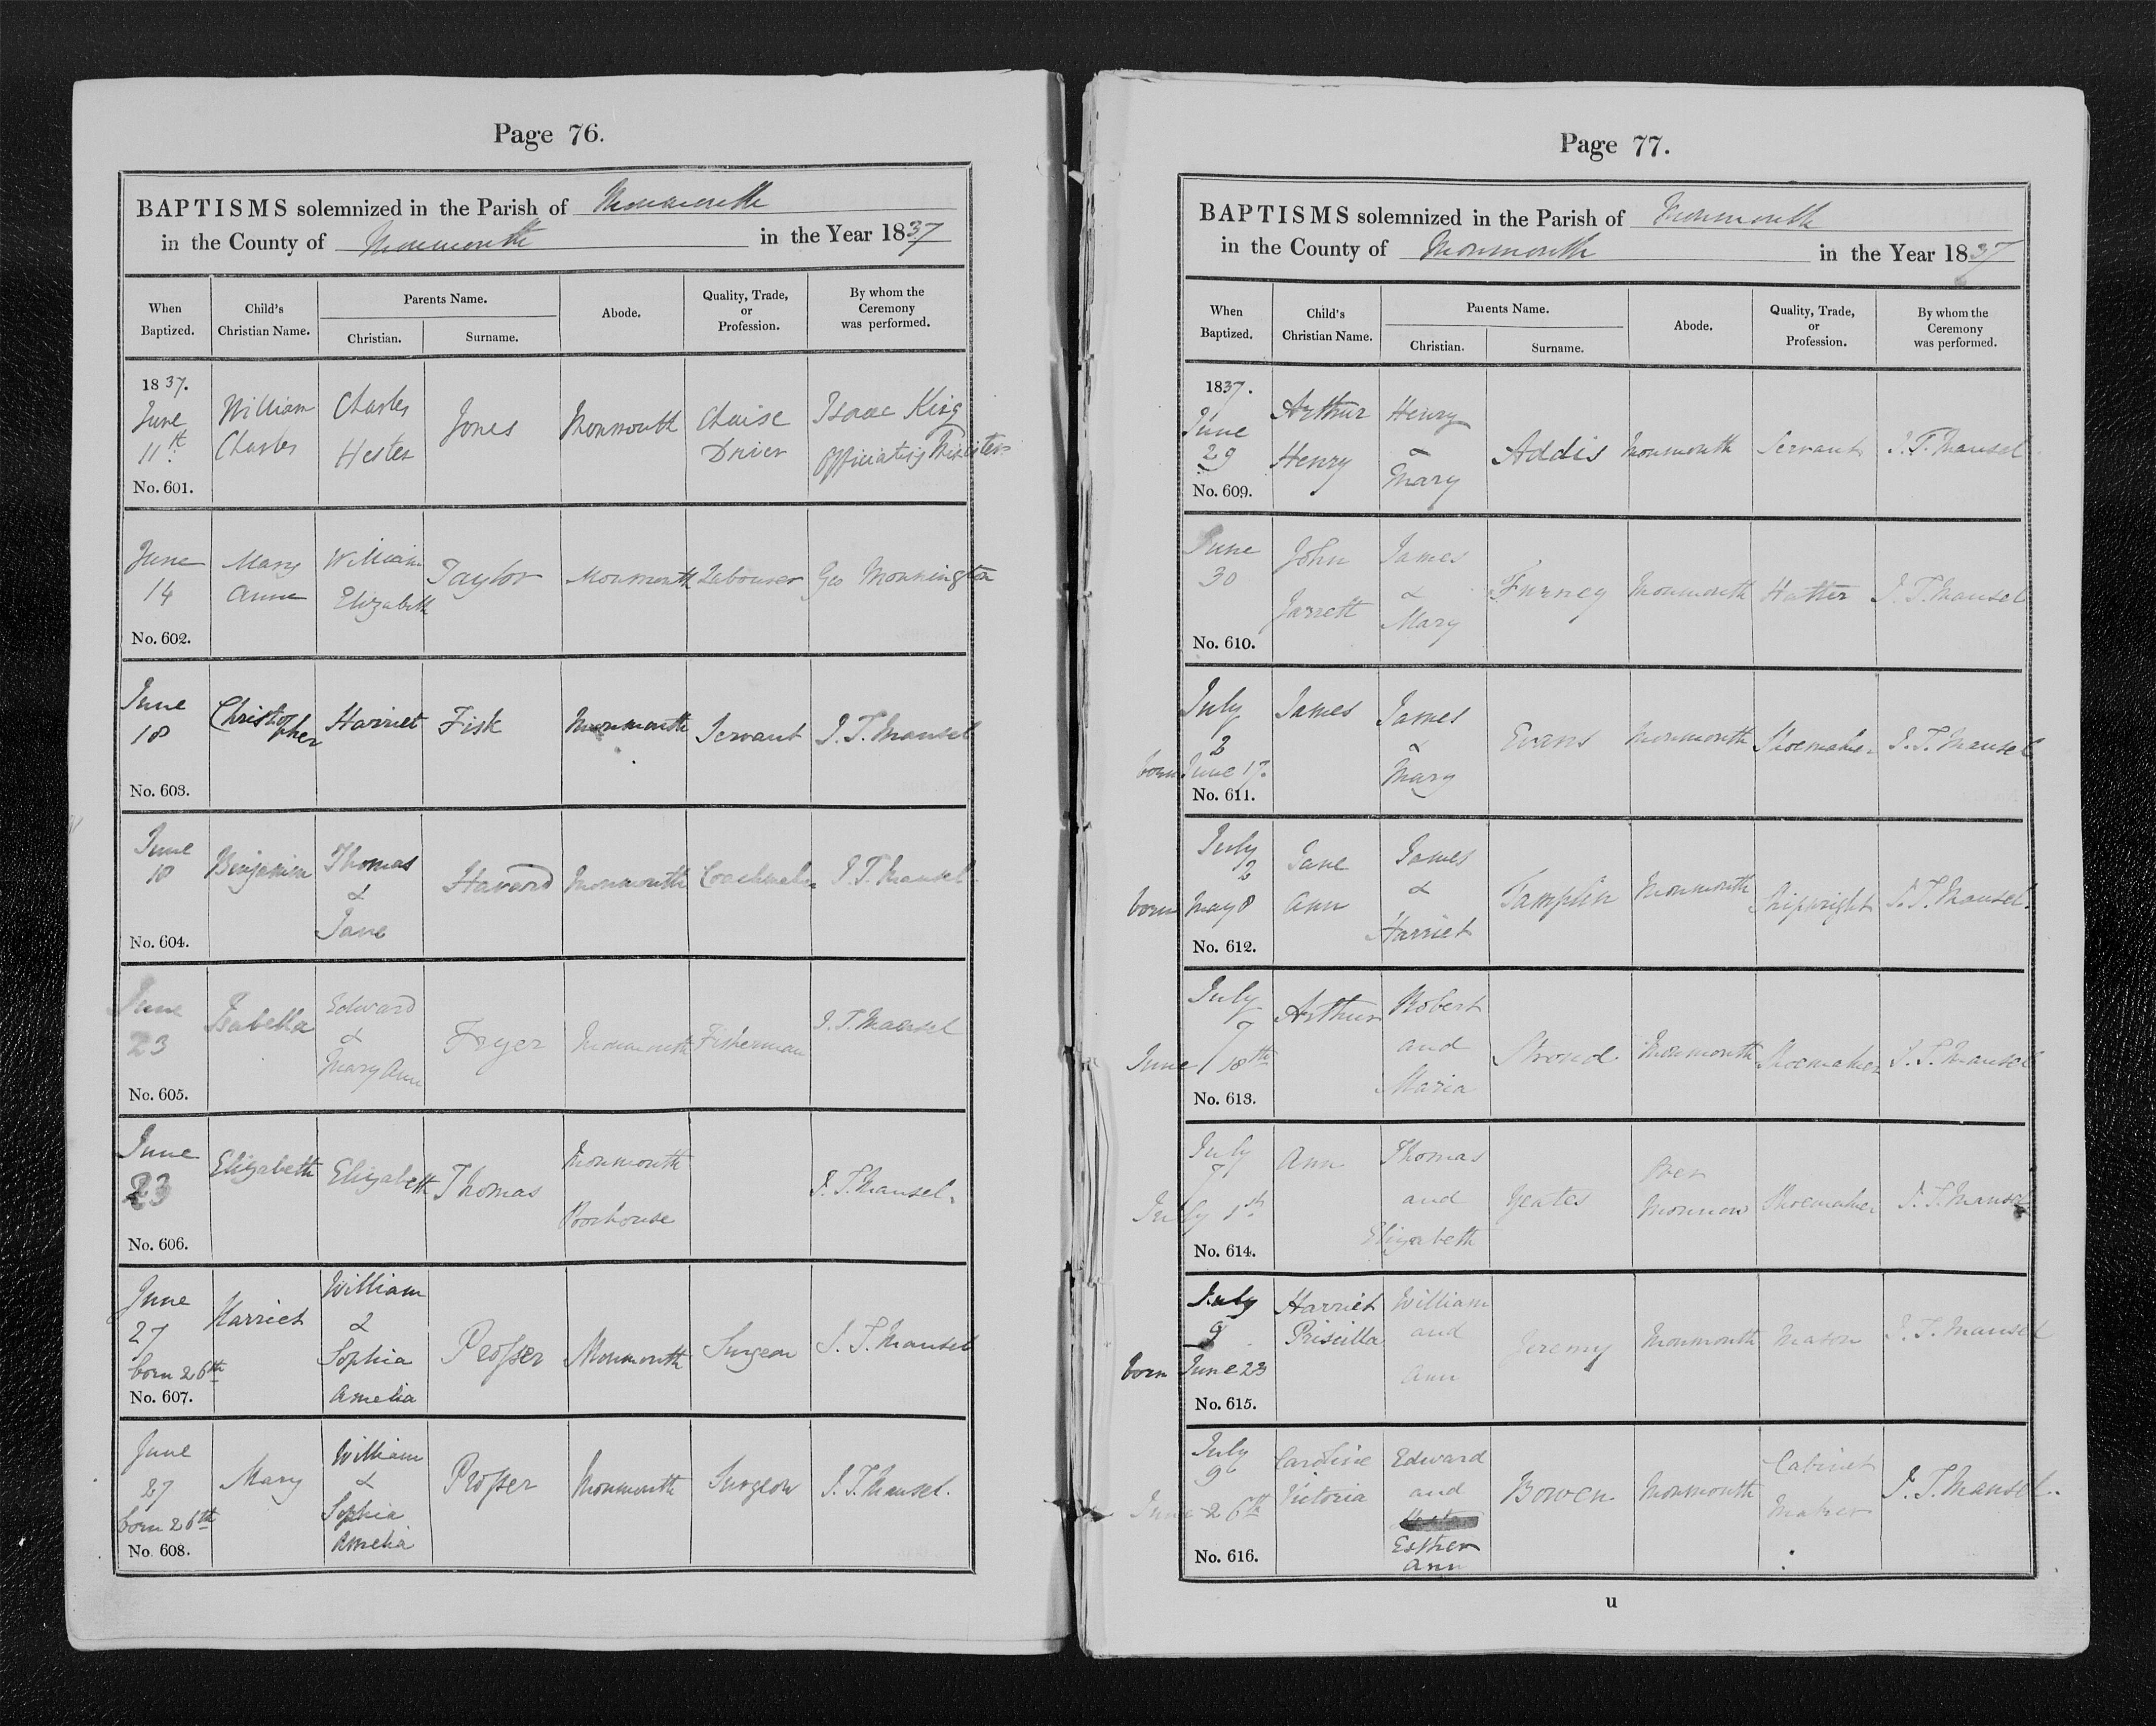 Page 76.
BAPTISMS solemnized in the Parish of Monmouth
in the County of Monmouth in the Year 1837
When Baptized.
Child's Christian Name.
Parents Name.
Christian.
Surname.
Abode.
Quality, Trade, or Profession.
By whom the Ceremony was performed.
1837.
June
11th
No. 601.
William
Charles
Charles
Hester
Jones
Monmouth
Chaise
Driver
Isaac King
Officiating Minister
June
14
No. 602.
Mary
Anne
William
Elizabeth
Taylor
Monmouth
Labourer
Geo Monnington
June
18
No. 603.
Christopher
Harriet
Fisk
Monmouth
Servant
J. T. Mansel
June
18
No. 604.
Benjamin
Thomas
&
Jane
Havard
Monmouth
Coachmaker
J. T. Mansel
June
23
No. 605.
Isabella
Edward
&
Mary Ann
Fryer
Monmouth
Fisherman
J. T. Mansel
June
23
No. 606.
Elizabeth
Elizabeth
Thomas
Monmouth
Poorhouse
J. T. Mansel.
June
27
born 26th
No. 607.
Harriet
William
&
Sophia
Amelia
Prosser
Monmouth
Surgeon
J. T. Mansel
June
27
born 26th
No. 608.
Mary
William
&
Sophia
Amelia
Prosser
Monmouth
Surgeon
J. T. Mansel.
Page 77.
BAPTISMS solemnized in the Parish of Monmouth
in the County of Monmouth in the Year 1837
When Baptized.
Child's Christian Name.
Parents Name.
Christian.
Surname.
Abode.
Quality, Trade, or Profession.
By whom the Ceremony was performed.
1837.
June
29
No. 609.
Arthur
Henry
Henry
&
Mary
Addis
Monmouth
Servant
J. T. Mansel
June
30
No. 610.
John
Jarrett
James
&
Mary
Furney
Monmouth
Hatter
J. T. Mansel
July
2
born June 17.
No. 611.
James
James
&
Mary
Evans
Monmouth
Shoemaker
J. T. Mansel
July
2
born May 8
No. 612.
Jane
Ann
James
&
Harriet
Tamplin
Monmouth
Shipwright
J. T. Mansel.
July
7
June 18th
No. 613.
Arthur
Robert
and
Maria
Stroud
Monmouth
Shoemaker
J. T. Mansel
July
7
July 1st
No. 614.
Ann
Thomas
and
Elizabeth
Yeates
Over
Monnow
Shoemaker
J. T. Mansel
July
9
born June 23
No. 615.
Harriet
Priscilla
William
and
Ann
Jeremy
Monmouth
Mason
J. T. Mansel
July
9
June 26th
No. 616.
Caroline
Victoria
Edward
and
Esther
Ann
Bowen
Monmouth
Cabinet
Maker
J. T. Mansel.
u